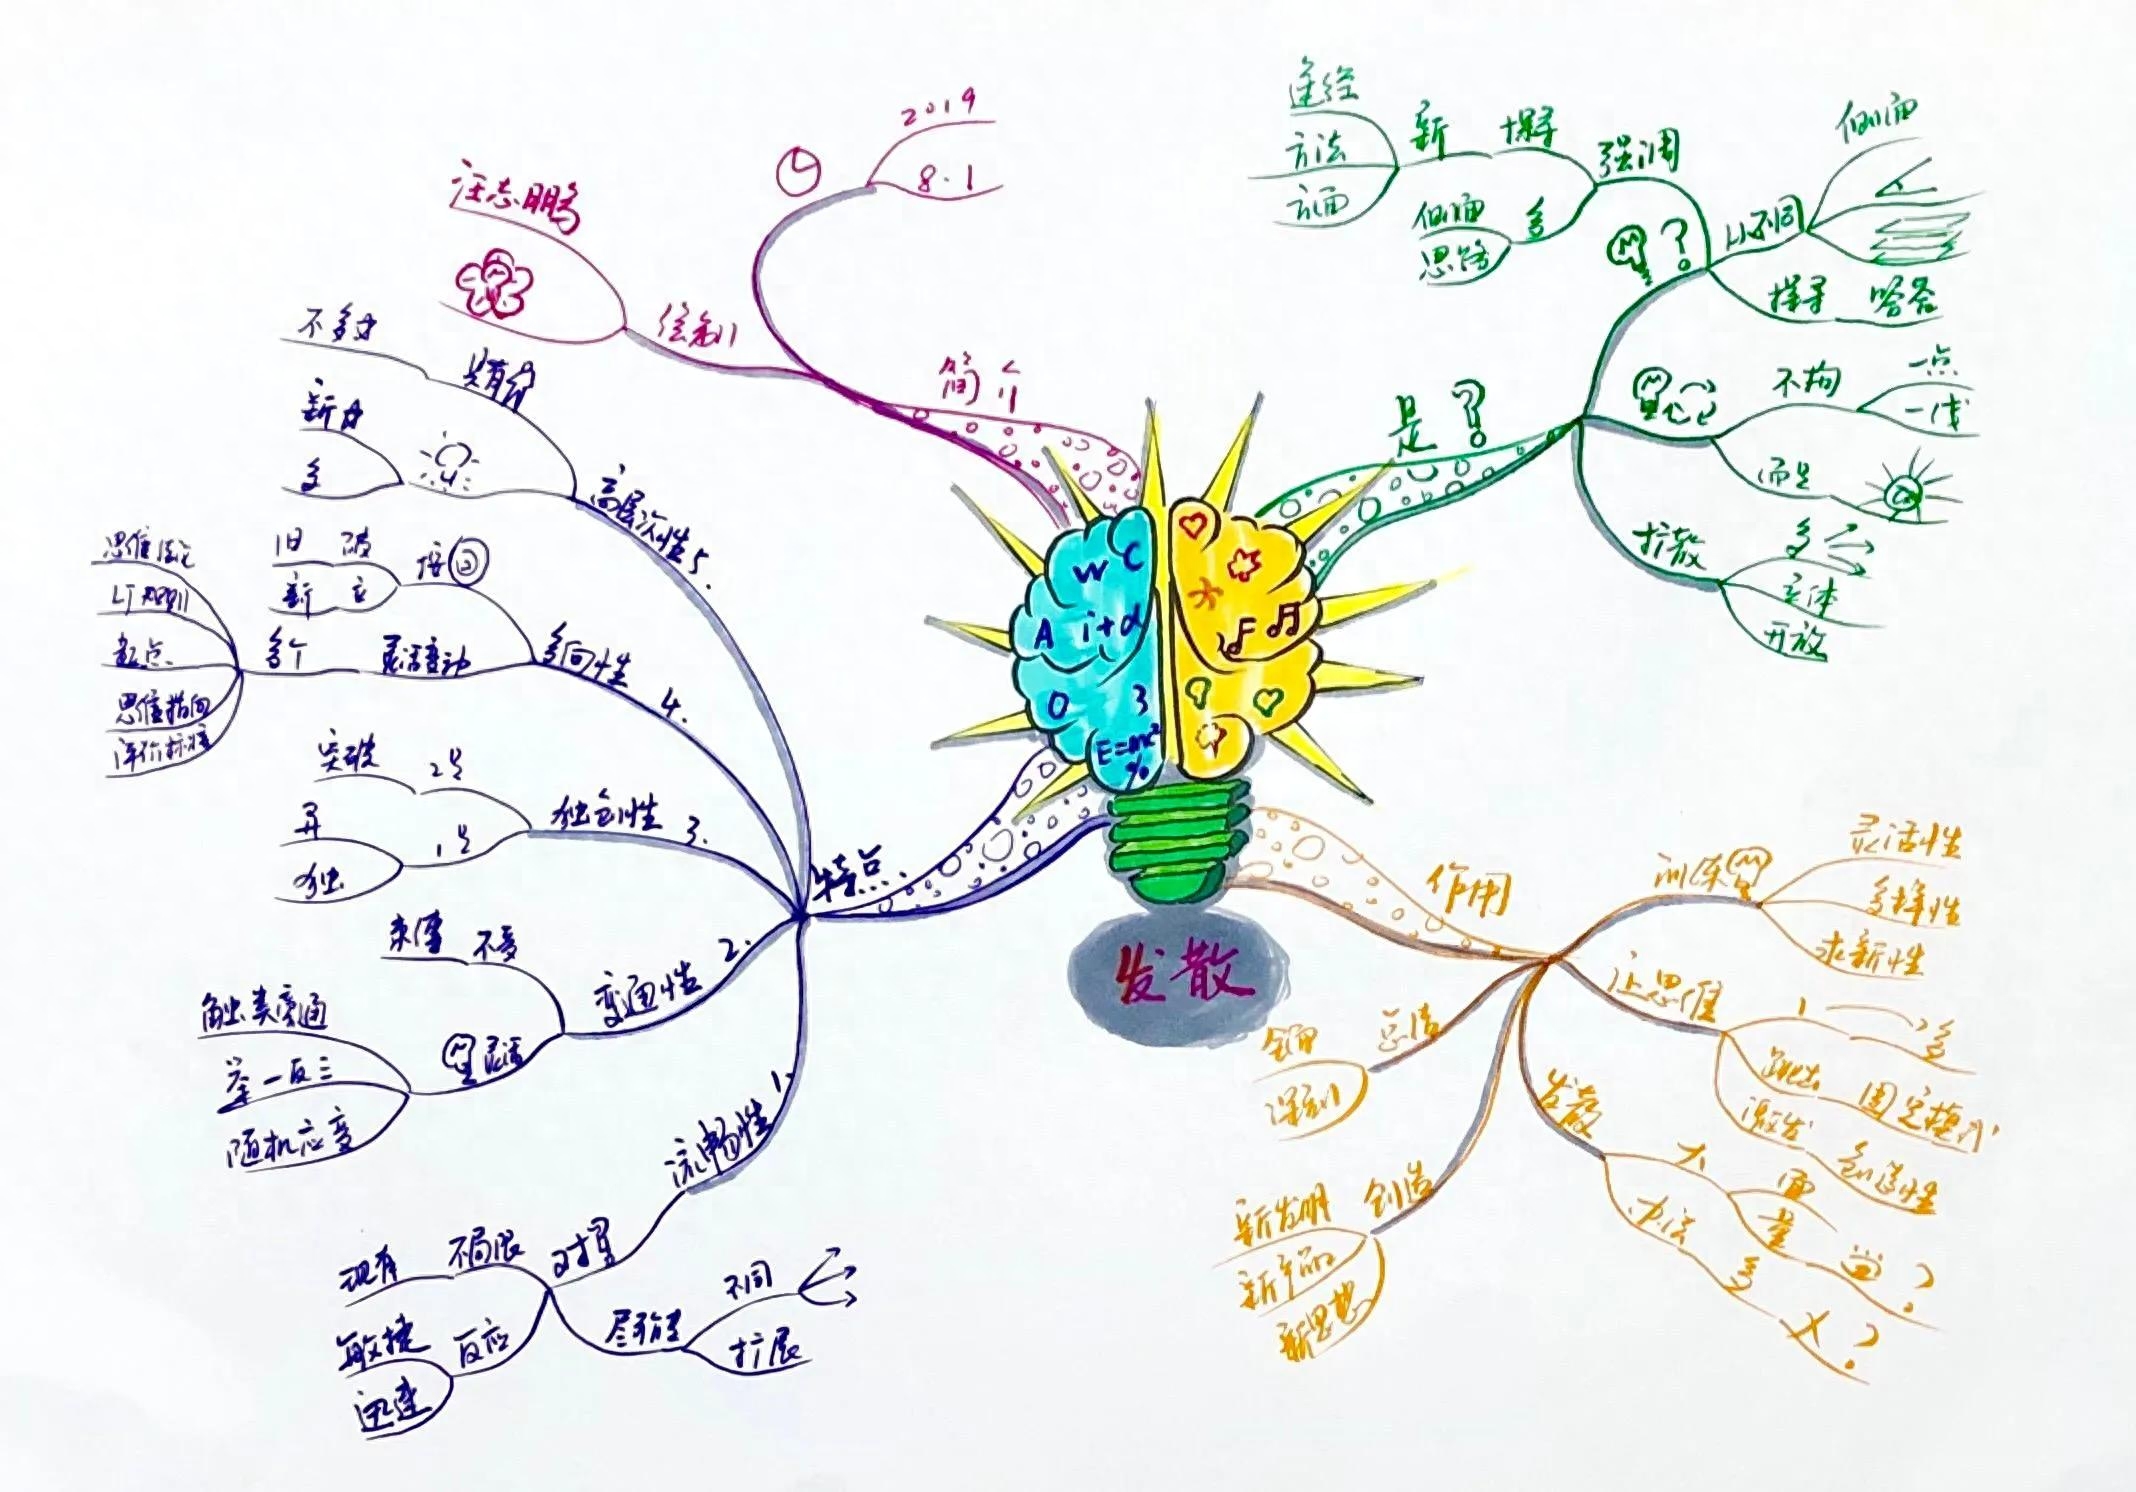 发散
W C
A i+d
O 3
E=mc²
%
简介
2019
8.1
汪志鹏
绘制
是?
?
强调
探寻
新
途径
方法
方面
多
侧面
思路
从不同
侧面
探寻 答案
不拘
一点
一线
而是
扩散
多
立体
开放
作用
训练
灵活性
多样性
求新性
让思维
1 多
跳出 固定模式
激发 创造性
发散
大
面
量 ?
办法 多 X?
创造
新发明
新产品
新思想
总结
全面
深刻
特点
1.
流畅性
对象
不局限
现有
反应
敏捷
迅速
尽可能
不同
扩展
2.
变通性
不受
束缚
灵活
触类旁通
举一反三
随机应变
3.
独创性
2号
突破
1号
异
独
4.
多向性
破
旧
立
新
灵活变动
多个
思维
起点
思维指向
评价标准
高层次性 5.
具有
不多
新
多